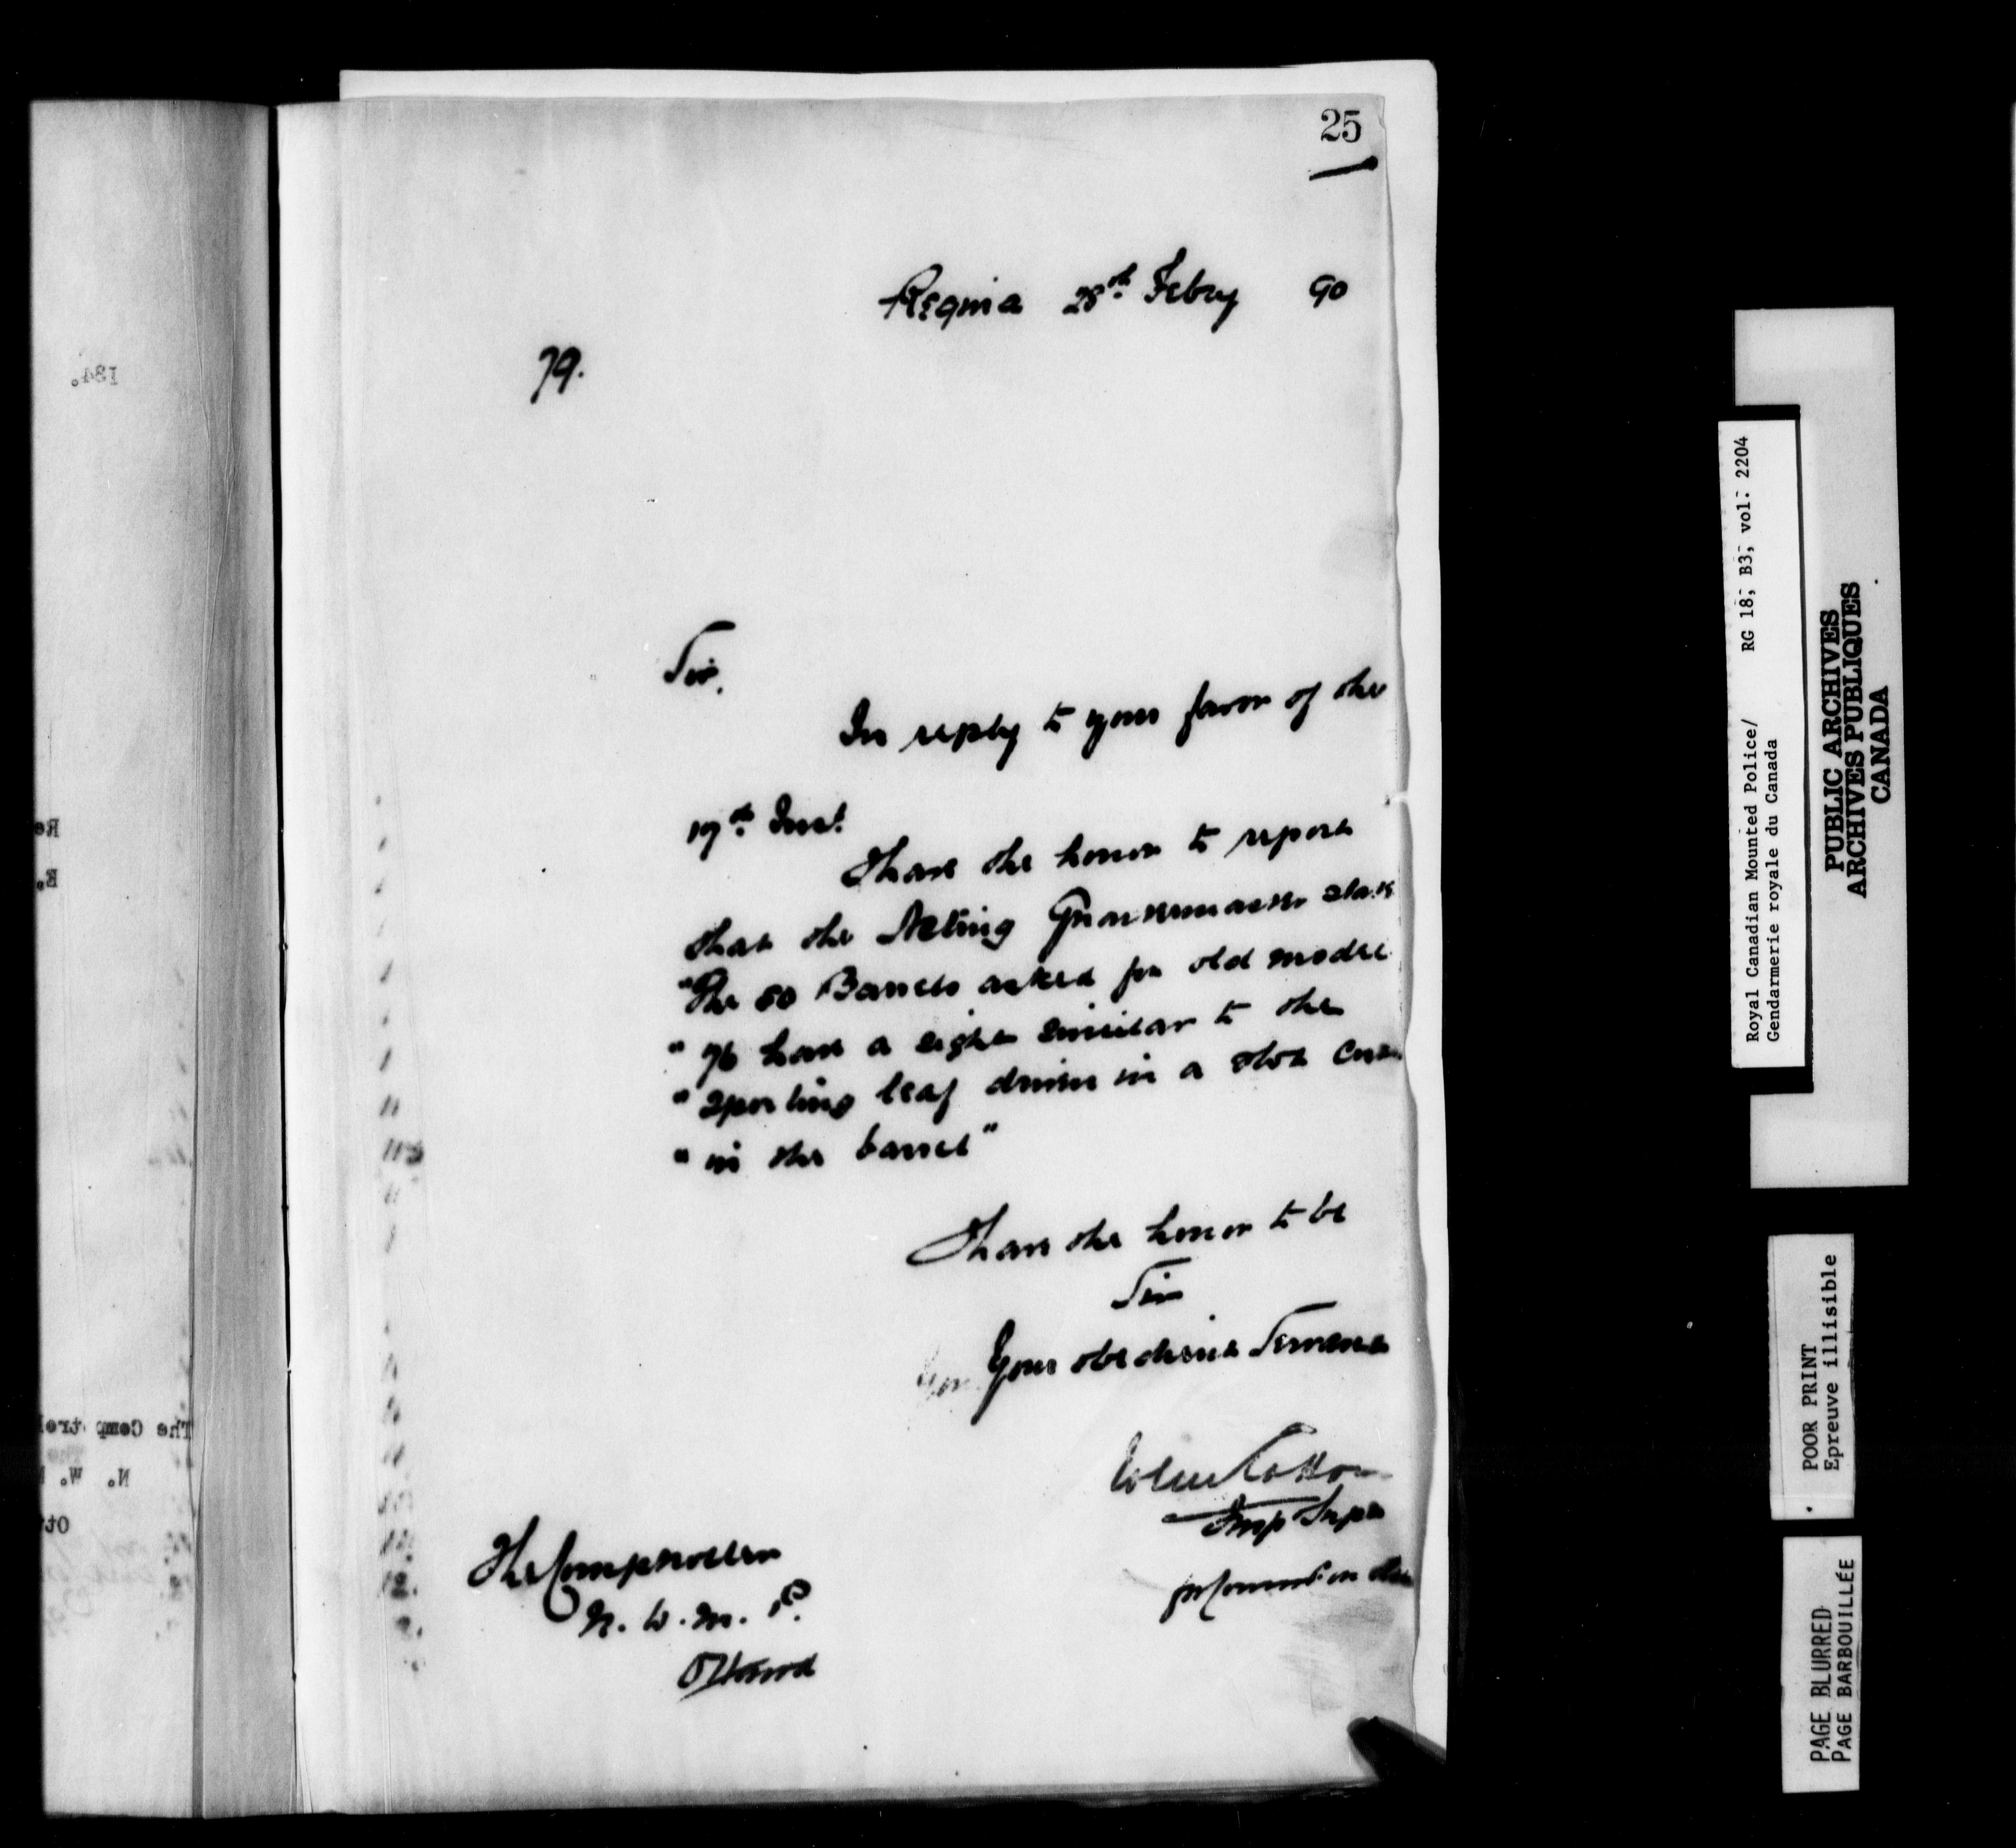 25
Regina 28th Febry 90
79.
Sir,
In reply to your favor of the
17th Inst.
I have the honor to report
that the Acting Quartermaster states
"The 50 Barrels asked for old model
" 76 have a sight similar to the
" sporting leaf driven in a slot cut
" in the barrel"
I have the honor to be
Sir
Your obedient Servant
John Cotton
Insp Supt
for Commr. on
The Comptroller
N. W. M. P.
Ottawa
184.
Re
E.
The Comptrol
N. W.
Ott
Royal Canadian Mounted Police/ RG 18, B3, vol. 2204
Gendarmerie royale du Canada
PUBLIC ARCHIVES
ARCHIVES PUBLIQUES
CANADA
POOR PRINT
Epreuve illisible
PAGE BLURRED
PAGE BARBOUILLÉE